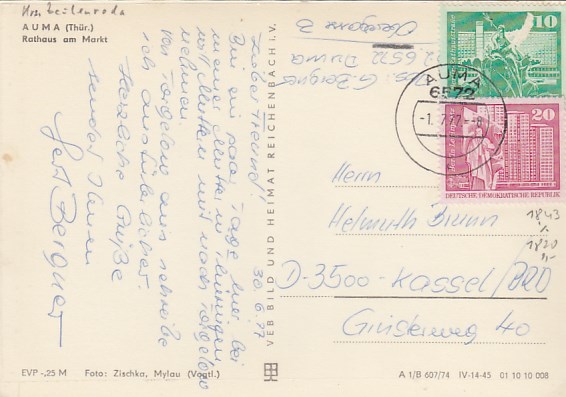 Krs. Zeulenroda
AUMA (Thür.)
Rathaus am Markt
30.6.77
Lieber Freund!
Bin ein paar Tage hier bei
meiner Mutter in Thüringen
will Mutter mit nach Torgelow
nehmen.
Von Torgelow aus schreibe
ich ausführlicher.
Herzliche Grüße
sendet Ihnen
Gert Bergner
VEB BILD UND HEIMAT REICHENBACH i. V.
Abs: G. Bergner
6572 Auma
AUMA
6572
-1.7.77-8
10
20
DEUTSCHE DEMOKRATISCHE REPUBLIK
Herrn
Helmuth Brunn
D-3500-Kassel/BRD
40
1843
1820
EVP -,25 M Foto: Zischka, Mylau (Vogtl.)
A 1/B 607/74 IV-14-45 01 10 10 008